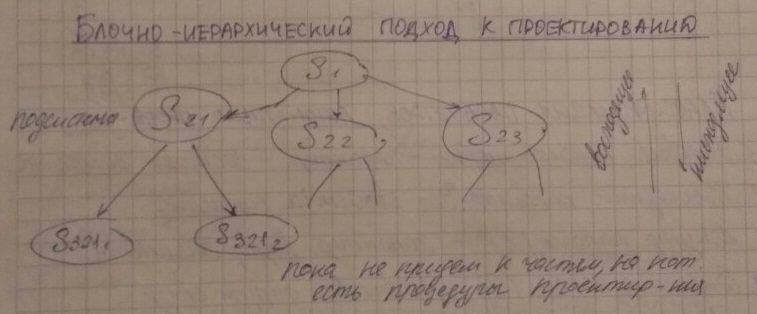 БЛОЧНО-ИЕРАРХИЧЕСКИЙ ПОДХОД К ПРОЕКТИРОВАНИЮ
S1
подсистема S21 S22 S23
восходящее нисходящее
S3211 S3212
пока не придем к частям, на кот.
есть процедуры проектир-ния